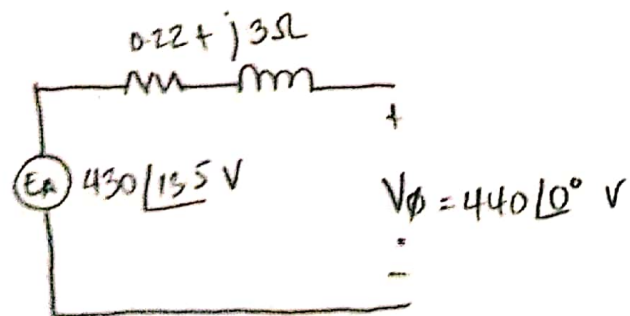 0.22 + j3Ω
+
EA 430∠13.5 V
Vø = 440∠0° V
−